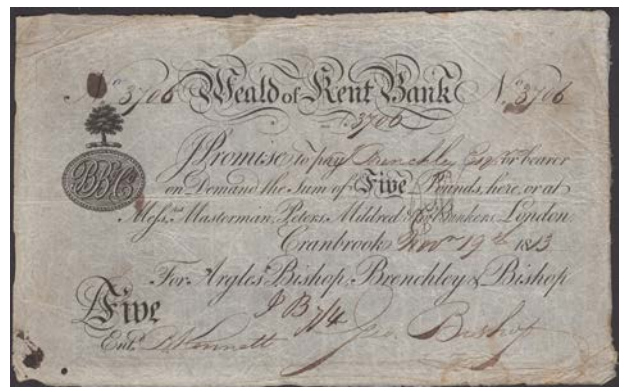 No. 3706 Weald of Kent Bank No. 3706
3706
BB&Co
I Promise to pay Brenchley Esqr. or bearer
on Demand the Sum of Five Pounds, here, or at
Messrs. Masterman, Peters, Mildred & Co. Bankers, London
Cranbrook Novr 19th 1813
For Argles Bishop, Brenchley & Bishop
Five
Entd. Geo. Bishop